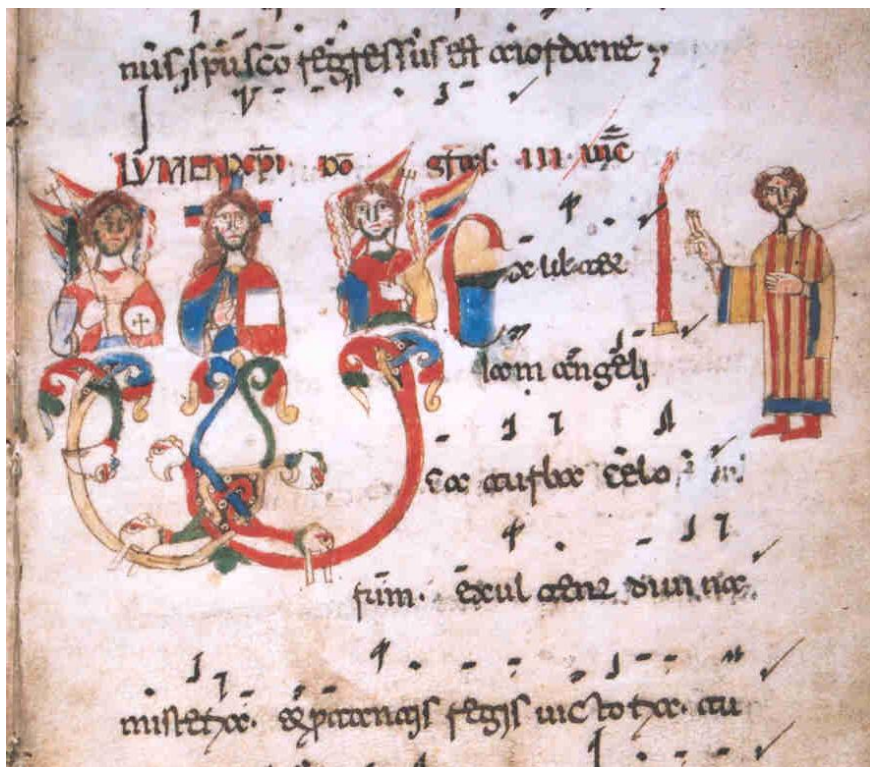 nus, spu sco regressus est a iordane ;
LUMEN XPI DO GRAS. III. UIC
E xul tet
iam angeli
ca turba celo
rum. exul tent diui na
misteria. et p tanti regis uic to ria. tu